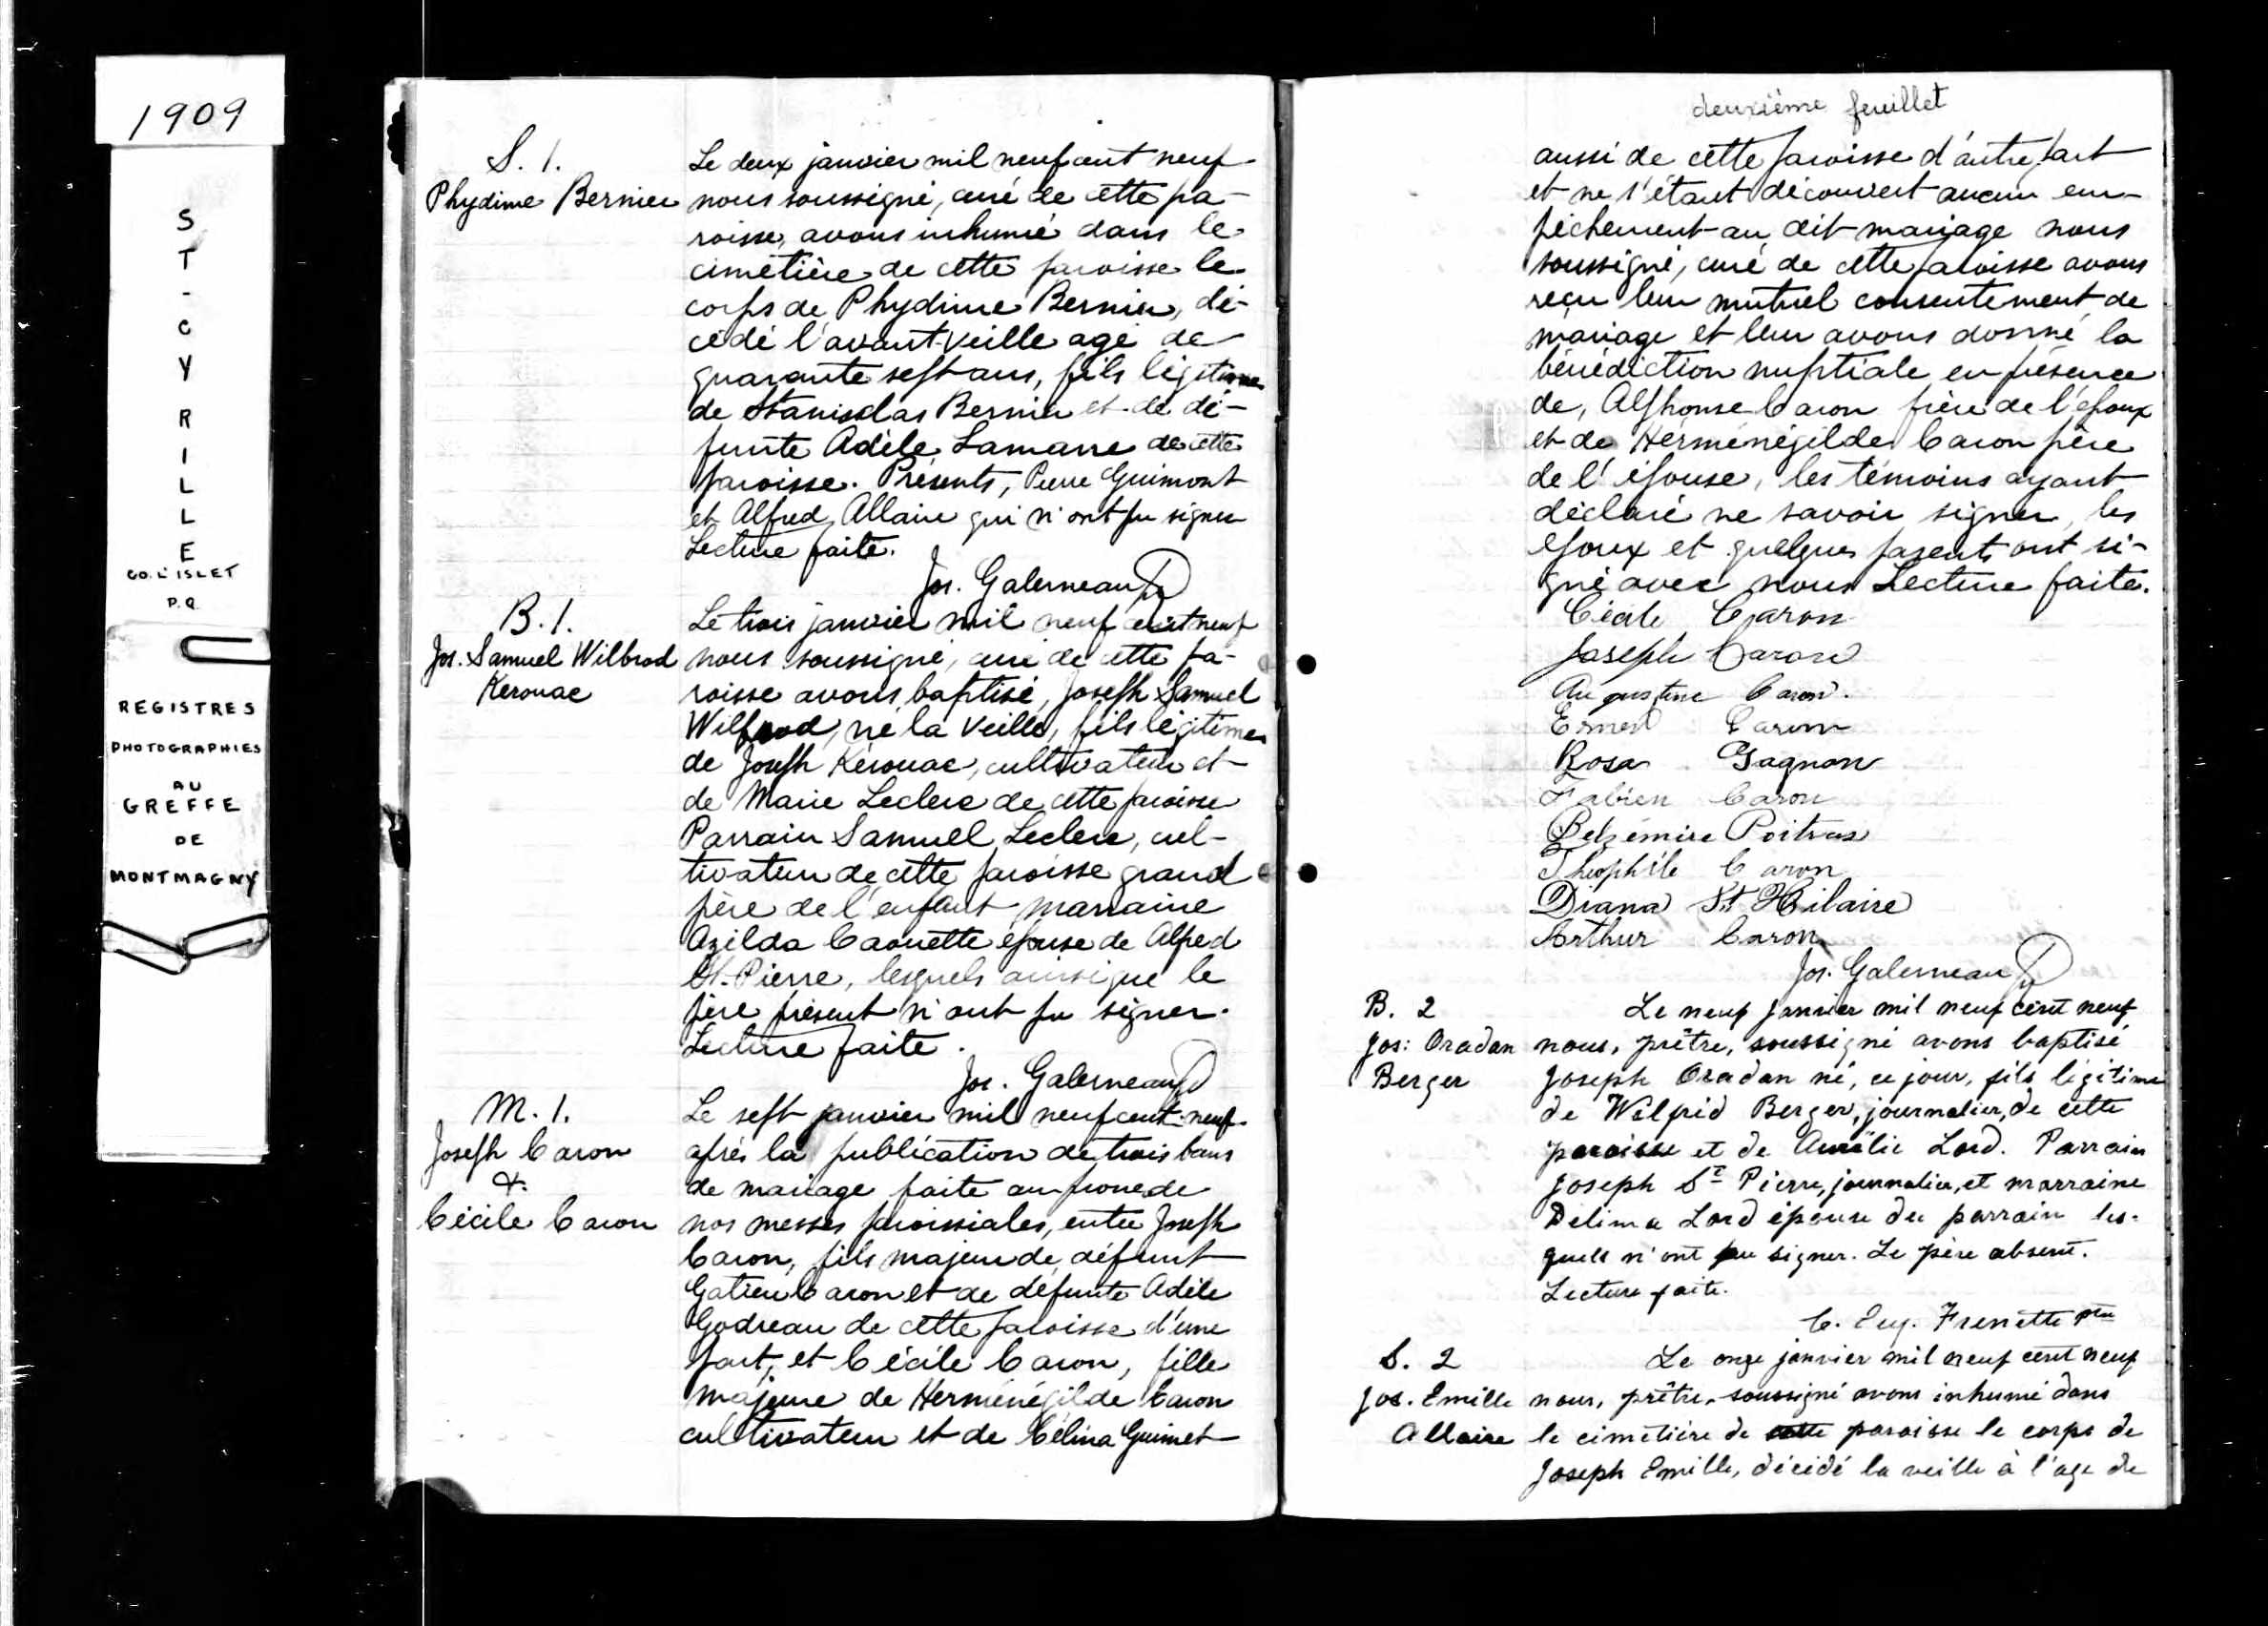 1909
ST-CYRILLE
CO. L'ISLET
P.Q.
REGISTRES
PHOTOGRAPHIES
AU
GREFFE
DE
MONTMAGNY
S. 1.
Phydime Bernier
Le deux janvier mil neuf cent neuf
nous soussigné, curé de cette pa-
roisse, avons inhumé dans le
cimetière de cette paroisse le
corps de Phydime Bernier, dé-
cédé l'avant veille agé de
quarante sept ans, fils légitime
de Stanisdas Bernier et de dé-
funte Adèle Lamarre de cette
paroisse. Présents, Pierre Guimont
et Alfred Allaire qui n'ont pu signer
Lecture faite.
Jos. Galerneau Ptre
B. 1.
Jos. Samuel Wilbrod
Kerouac
Le trois janvier mil neuf cent neuf
nous soussigné, curé de cette pa-
roisse avons baptisé, Joseph Samuel
Wilbrod, né la veille, fils légitime
de Joseph Kérouac, cultivateur et
de Marie Leclerc de cette paroisse
Parrain Samuel Leclerc, cul-
tivateur de cette paroisse grand
père de l'enfant marraine
Azilda Caouette épouse de Alfred
St-Pierre, lesquels ainsi que le
père présent n'ont pu signer.
Lecture faite.
Jos. Galerneau Ptre
M. 1.
Joseph Caron
&
Cécile Caron
Le sept janvier mil neuf cent neuf
après la publication de trois bans
de mariage faite au prone de
nos messes paroissiales, entre Joseph
Caron, fils majeur de défunt
Gatien Caron et de défunte Adèle
Godreau de cette paroisse d'une
part, et Cécile Caron, fille
majeure de Herménégilde Caron
cultivateur et de Célina Guimet
deuxième feuillet
aussi de cette paroisse d'autre part
et ne s'étant découvert aucun em-
pèchement au dit mariage nous
soussigné, curé de cette paroisse avons
reçu leur mutuel consentement de
mariage et leur avons donné la
bénédiction nuptiale en présence
de, Alphonse Caron frère de l'époux
et de Herménégilde Caron père
de l'épouse, les témoins ayant
déclaré ne savoir signer, les
époux et quelques parents ont si-
gné avec nous Lecture faite.
Cécile Caron
Joseph Caron
Augustine Caron.
Ernest Caron
Rosa Gagnon
Fabien Caron
Belzémire Poitras
Théophile Caron
Diana St Hilaire
Arthur Caron
Jos. Galerneau Ptre
B. 2
Jos: Oradan
Berger
Le neuf janvier mil neuf cent neuf
nous, prêtre, soussigné avons baptisé
Joseph Oradan né, ce jour, fils légitime
de Wilfrid Berger, journalier, de cette
paroisse et de Aurélie Lord. Parrain
Joseph St Pierre, journalier, et marraine
Délima Lord épouse du parrain les-
quels n'ont pu signer. Le père absent.
Lecture faite.
C. Eug. Frenette ptre
S. 2
Jos. Emille
Allaire
Le onze janvier mil neuf cent neuf
nous, prêtre, soussigné avons inhumé dans
le cimetière de cette paroisse le corps de
Joseph Emille, décédé la veille à l'age de